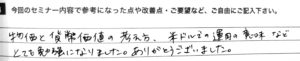 今回のセミナー内容で参考になった点や改善点・ご要望など、ご自由にご記入下さい。
物価と貨幣価値の考え方、米ドルでの運用の意味など
とても勉強になりました。ありがとうございました。